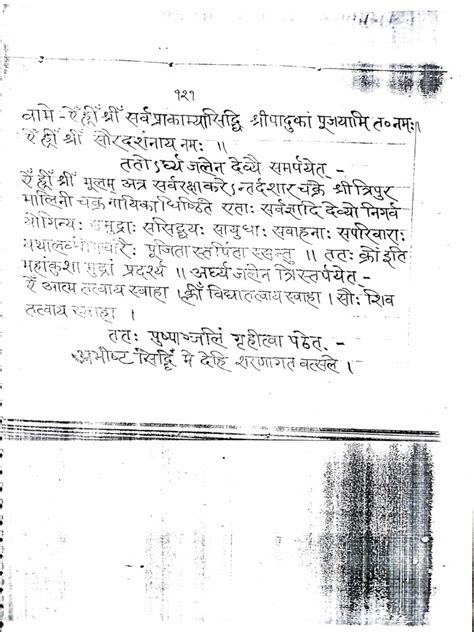 १२१
वामे - ऐं ह्रीं श्रीं सर्वप्राकाम्यासिद्धि श्रीपादुकां पूजयामि त॰नमः॥
ऐं ह्रीं श्रीं सौरदर्शनाय नमः ॥
ततोऽर्घ्यजलेन देव्यै समर्पयेत् -
ऐं ह्रीं श्रीं मूलम् अत्र सर्वरक्षाकरेऽन्तर्दशार चक्रे श्रीत्रिपुर
मालिनी चक्र नायिकाधिष्ठिते एताः सर्वज्ञादि देव्यो निगर्व
योगिन्यः समुद्राः ससिद्धयः सायुधाः सवाहनाः सपरिवाराः
पूजिता स्तर्पिता स्सन्तु ॥ ततः क्रों इति
महांकुशा मुद्रां प्रदर्श्य ॥ अर्घ्यजलेन त्रिस्तर्पयेत् -
ऐं आत्म तत्वाय स्वाहा । क्लीं विद्यातत्वाय स्वाहा । सौः शिव
तत्वाय स्वाहा ।
ततः पुष्पाञ्जलिं गृहीत्वा पठेत् -
अभीष्ट सिद्धिं मे देहि शरणागत वत्सले ।